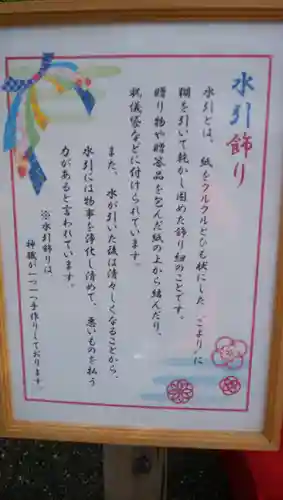 水引飾り
水引とは、紙をクルクルとひも状にした、こよりに
糊を引いて乾かし固めた飾り紐のことです。
贈り物や贈答品を包んだ紙の上から結んだり、
祝儀袋などに付けられています。
また、水が引いた後は清々しくなることから、
水引には物事を浄化し清めて、悪いものを払う
力があると言われています。
※水引飾りは
神職が一つ一つ手作りしております。